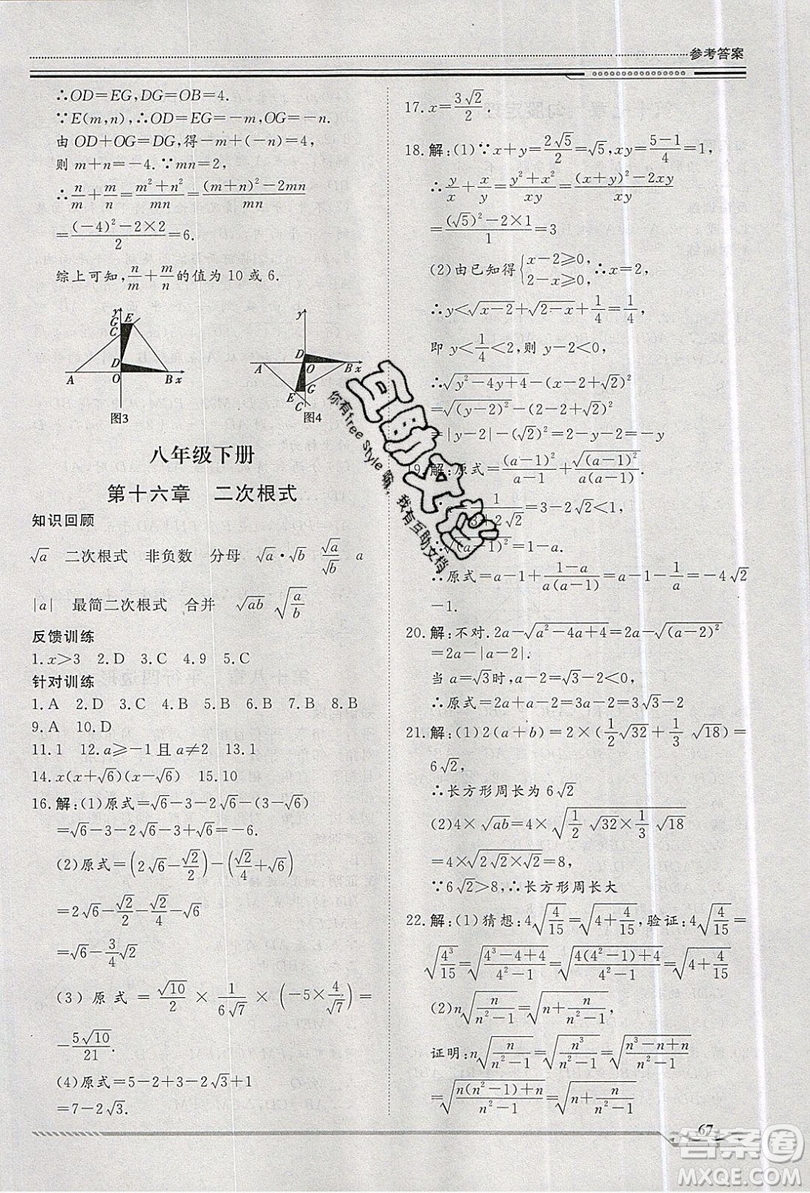 参考答案
∴OD=EG,DG=OB=4.
∵E(m,n),∴OD=EG=m,OG=-n.
由 OD+OG=DG=4,得 m+(-n)=4,
则 m+n=-4. ∵mn=2,
∴n/m+m/n=(m²+n²)/mn=((m+n)²-2mn)/mn
=((-4)²-2×2)/2=6.
综上可知,n/m+m/n的值为 10 或 6.
y G E C D A O B x
图3
y D A O B x G E C
图4
八年级下册
第十六章 二次根式
知识回顾
√a 二次根式 非负数 分母 √a·√b √a/√b a
|a| 最简二次根式 合并 √ab √(a/b)
反馈训练
1.x>3 2.D 3.C 4.9 5.D
针对训练
1.A 2.D 3.C 4.A 5.D 6.B 7.B 8.B
9.A 10.D
11.1 12.a≥-1且a≠2 13.1
14.x(x+√6)(x-√6) 15.10
16.解:(1)原式=√6-3-2√6-(3-√6)
=√6-3-2√6-3+√6=-6.
(2)原式=(2√6-√2/2)-(√2/4+√6)
=2√6-√2/2-√2/4-√6
=√6-3/4√2
(3)原式=√10/2×1/(6√7)×(-5×4√7/7)=
-5√10/21.
(4)原式=5-2+3-2√3+1
=7-2√3.
17.x=3√2/2.
18.解:(1)∵x+y=2√5/2=√5,xy=(5-1)/4=1,
∴y/x+x/y=(y²+x²)/xy=((x+y)²-2xy)/xy
=((√5)²-2×1)/1=3
(2)由已知得{x-2≥0, 2-x≥0,∴x=2,
∴y<√(x-2)+√(2-x)+1/4=1/4,
即 y<1/4<2 则 y-2<0,
∴√(y²-4y+4)-(2-y+√2)
=√((y-2)²)-(2-y+√2)
=|y-2|-(2-y+√2)=-√2.
19.解:原式=(a-1)²/(a-1)-√((a-1)²)/(a(a-1)),
=3-2√2<1
∴√((a-1)²)=1-a.
∴原式=a-1-(1-a)/(a(a-1))=a-1+1/a=6-
1.
20.解:不对.2a-√(a²-4a+4)=2a-√((a-2)²)
=2a-|a-2|.
当 a=√3时,a-2=√3-2<0,
∴原式=2a+a-2=3a-2=3√3-2
21.解:(1)2(a+b)=2×(1/2√32+1/3√18)=
6√2,
∴长方形周长为6√2
(2)4×√ab=4×√(1/2√32×1/3√18)
=4×√(2√2×√2)=4×2=8,
∵6√2>8,∴长方形周长大
22.解:(1)猜想:4√(4/15)=√(4+4/15),验证:4√(4/15)=
√(4³/15)=√((4³-4+4)/15)=√((4(4²-1)+4)/(4²-1))=√(4+4/15)
(2)n√(n/(n²-1))=√(n+n/(n²-1)),
证明:n√(n/(n²-1))=√(n³/(n²-1))=√((n³-n+n)/(n²-1))
=√((n(n²-1)+n)/(n²-1))=√(n+n/(n²-1))
67
互助文档
你有free Style 嘛,我有互助文档
答案圈
MXQE.COM